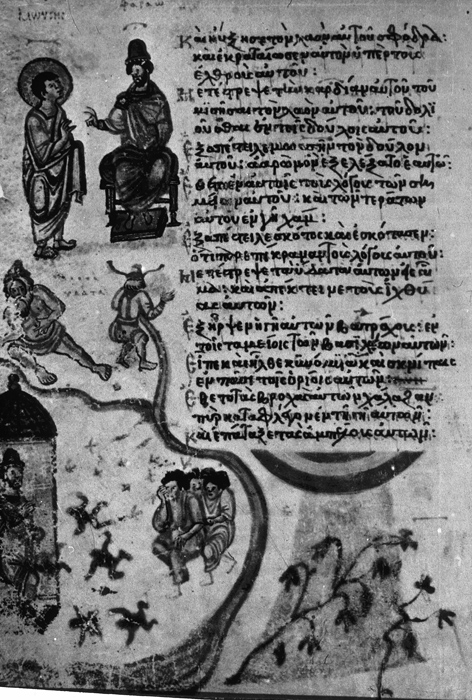 ΜΩΥΣΗΣ
ΦΑΡΑΩ
Καὶ ηὔξησε τὸν λαὸν αὐτοῦ σφόδρα:
καὶ ἐκραταίωσεν αὐτὸν ὑπὲρ τοὺς
ἐχθροὺς αὐτοῦ:
Μετέστρεψε τὴν καρδίαν αὐτοῦ τοῦ
μισῆσαι τὸν λαὸν αὐτοῦ: τοῦ δολι
οῦσθαι ἐν τοῖς δούλοις αὐτοῦ:
Ἐξαπέστειλε μωσῆν τὸν δοῦλον
αὐτοῦ: ἀαρὼν ὃν ἐξελέξατο ἑαυτῷ:
Ἔθετο ἐν αὐτοῖς τοὺς λόγους τῶν ση
μείων αὐτοῦ: καὶ τῶν τεράτων
αὐτοῦ ἐν γῇ χάμ:
Ἐξαπέστειλε σκότος καὶ ἐσκότασεν:
ὅτι παρεπίκραναν τοὺς λόγους αὐτοῦ:
Μετέστρεψε τὰ ὕδατα αὐτῶν εἰς αἷ
μα: καὶ ἀπέκτεινε τοὺς ἰχθύ
ας αὐτῶν:
Ἐξῆρψεν ἡ γῆ αὐτῶν βατράχους: ἐν
τοῖς ταμείοις τῶν βασιλέων αὐτῶν:
Εἶπε καὶ ἦλθε κυνόμυια καὶ σκνῖπες
ἐν πᾶσι τοῖς ὁρίοις αὐτῶν:
Ἔθετο τὰς βροχὰς αὐτῶν χάλαζαν
πῦρ καταφλέγον ἐν τῇ γῇ αὐτῶν:
Καὶ ἐπάταξε τὰς ἀμπέλους αὐτῶν: